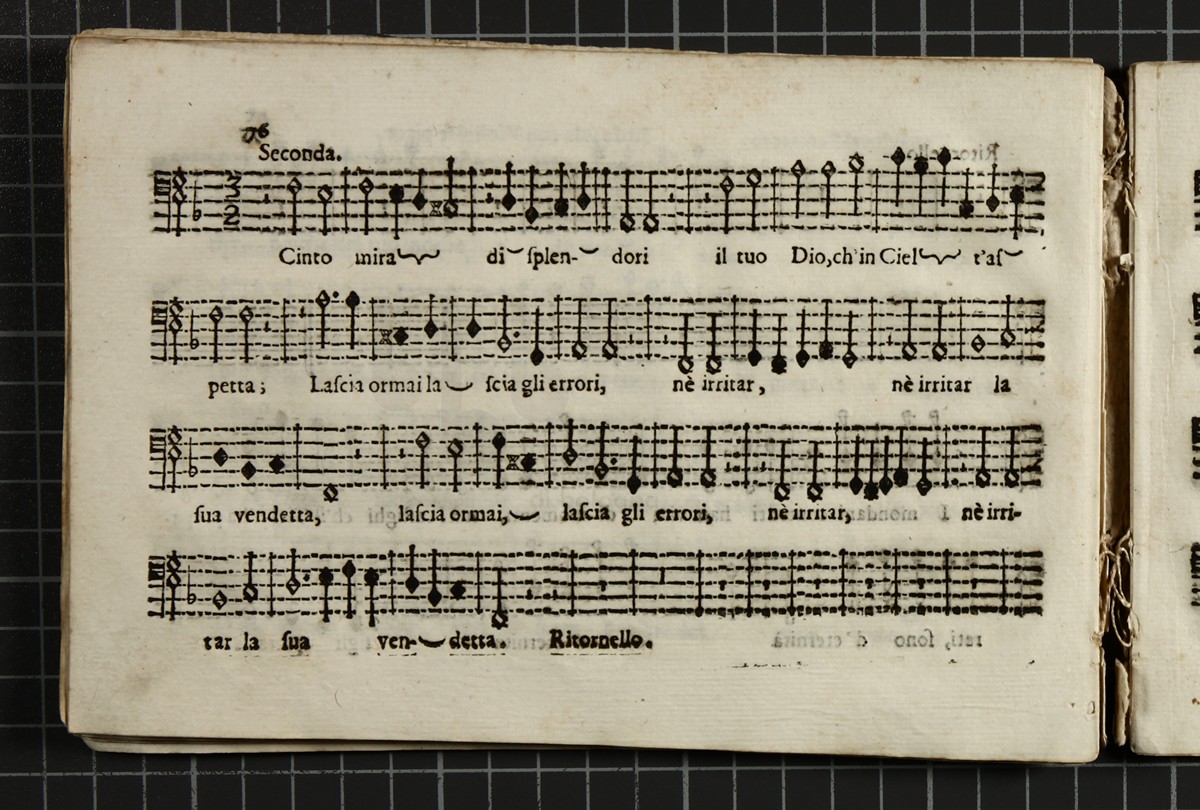 76
Seconda.
3
2
Cinto mira di ſplen- dori il tuo Dio, ch'in Ciel t'aſ
petta; Laſcia ormai la ſcia gli errori, nè irritar, nè irritar la
ſua vendetta, laſcia ormai, laſcia gli errori, nè irritar, nè irri-
tar la ſua ven- detta. Ritornello.